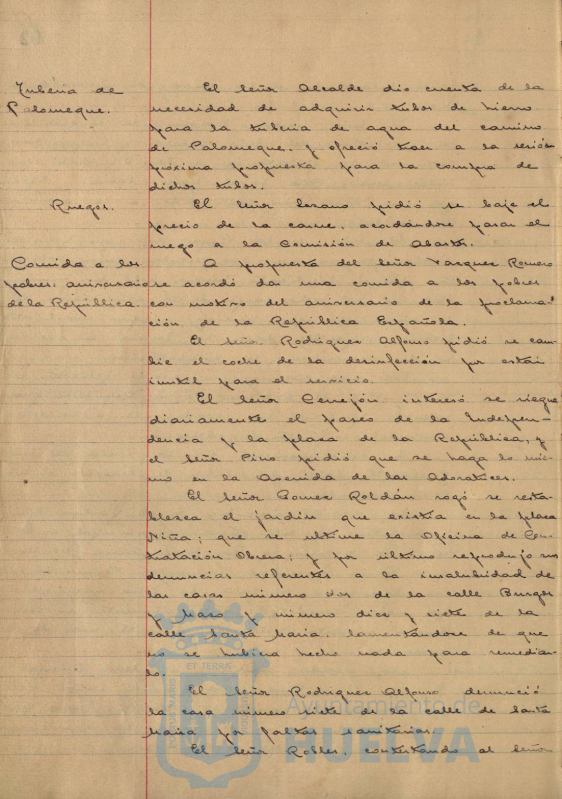 Tubería de
Palomeque.
El Señor Alcalde dio cuenta de la
necesidad de adquirir tubos de hierro
para la tubería de agua del camino
de Palomeque, y ofreció traer a la sesión
próxima propuesta para la compra de
dichos tubos.
Ruegos.
El Señor Lozano pidió se baje el
precio de la carne, acordándose pasar el
ruego a la Comisión de Abastos.
Comida a los
pobres, aniversario
de la República.
A propuesta del Señor Vazquez Romero
se acordó dar una comida a los pobres
con motivo del aniversario de la proclama-
ción de la República Española.
El Señor Rodriguez Alfonso pidió se cam-
bie el coche de la desinfección por estar
inutil para el servicio.
El Señor Cerrejón interesó se riegue
diariamente el paseo de la Indepen-
dencia y la plaza de la República, y
el Señor Pino pidió que se haga lo mis-
mo en la Avenida de las Adoratrices.
El Señor Gomez Roldán rogó se resta-
blezca el jardin que existia en la plaza
Niña; que se ultime la Oficina de Con-
tratación Obrera; y por último reprodujo sus
denuncias referentes a la insalubridad de
las casas número dos de la calle Burgos
y Mazo y número diez y siete de la
calle Santa Maria, lamentándose de que
no se hubiera hecho nada para remediar-
lo.
El Señor Rodriguez Alfonso denunció
la casa número siete de la calle de Santa
Maria por faltas sanitarias.
El Señor Robles, contestando al Señor
Ayuntamiento de
HUELVA